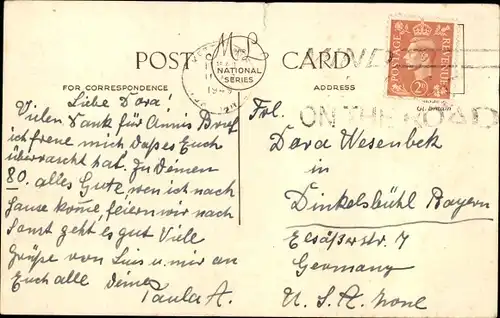 POST CARD
NATIONAL
SERIES
FOR CORRESPONDENCE
ADDRESS
POSTAGE
REVENUE
2D
1949
ON THE ROAD
Liebe Dora!
Vielen Dank für Annis Brief
ich freue mich daßes Euch
überrascht hat. Zu Deinen
80. alles Gute wen ich nach
Hause kome, feiern wir nach
Sonst geht es gut Viele
Grüße von Luis u. mir an
Euch alle Deine
Paula A.
Frl.
Dora Wesenbek
in
Dinkelsbühl Bayern
Elsäßerstr. 7
Germany
U. S. A. Zone